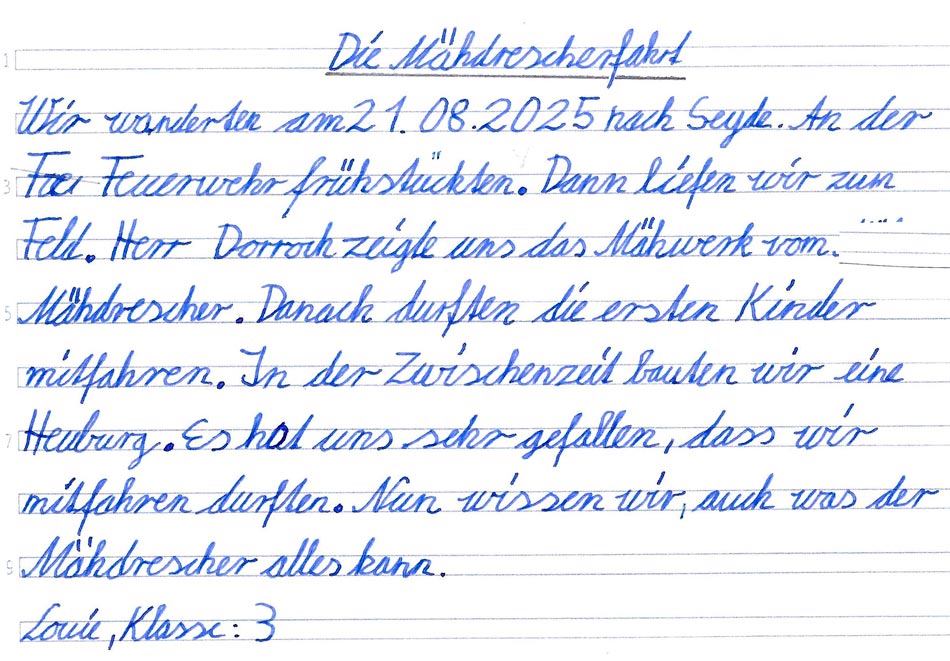 Die Mähdrescherfahrt
Wir wanderten am 21.08.2025 nach Seyde. An der
Feuerwehr frühstückten. Dann liefen wir zum
Feld. Herr Dorroch zeigte uns das Mähwerk vom
Mähdrescher. Danach durften die ersten Kinder
mitfahren. In der Zwischenzeit bauten wir eine
Heuburg. Es hat uns sehr gefallen, dass wir
mitfahren durften. Nun wissen wir, auch was der
Mähdrescher alles kann.
Louie, Klasse: 3